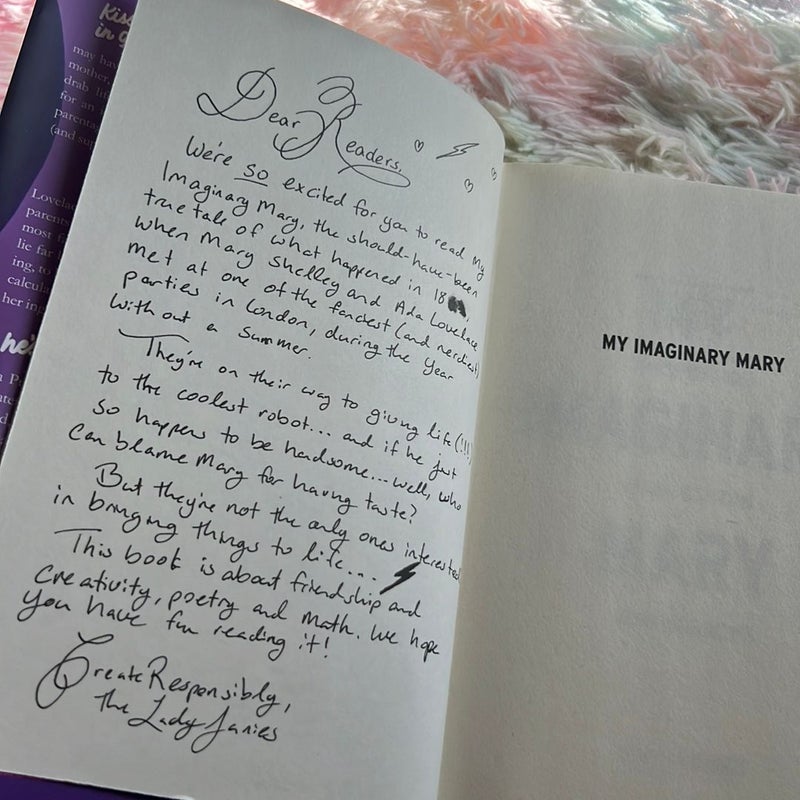 Kiss
in g
may hav
mother,
drab li
for an
parenta
(and su
Lovela
parents
most f
lie far
ing, to
calcula
her in
he's
Dear Readers,
We're so excited for you to read My
Imaginary Mary, the should-have-been
true tale of what happened in 18
when Mary Shelley and Ada Lovelace
met at one of the fanciest (and nerdiest)
parties in London, during the Year
Without a Summer.
They're on their way to giving life (!!!)
to the coolest robot... and if he just
so happens to be handsome... well, who
can blame Mary for having taste?
But they're not the only ones interested
in bringing things to life...
This book is about friendship and
creativity, poetry and math. We hope
you have fun reading it!
Create Responsibly,
The Lady Janies
MY IMAGINARY MARY